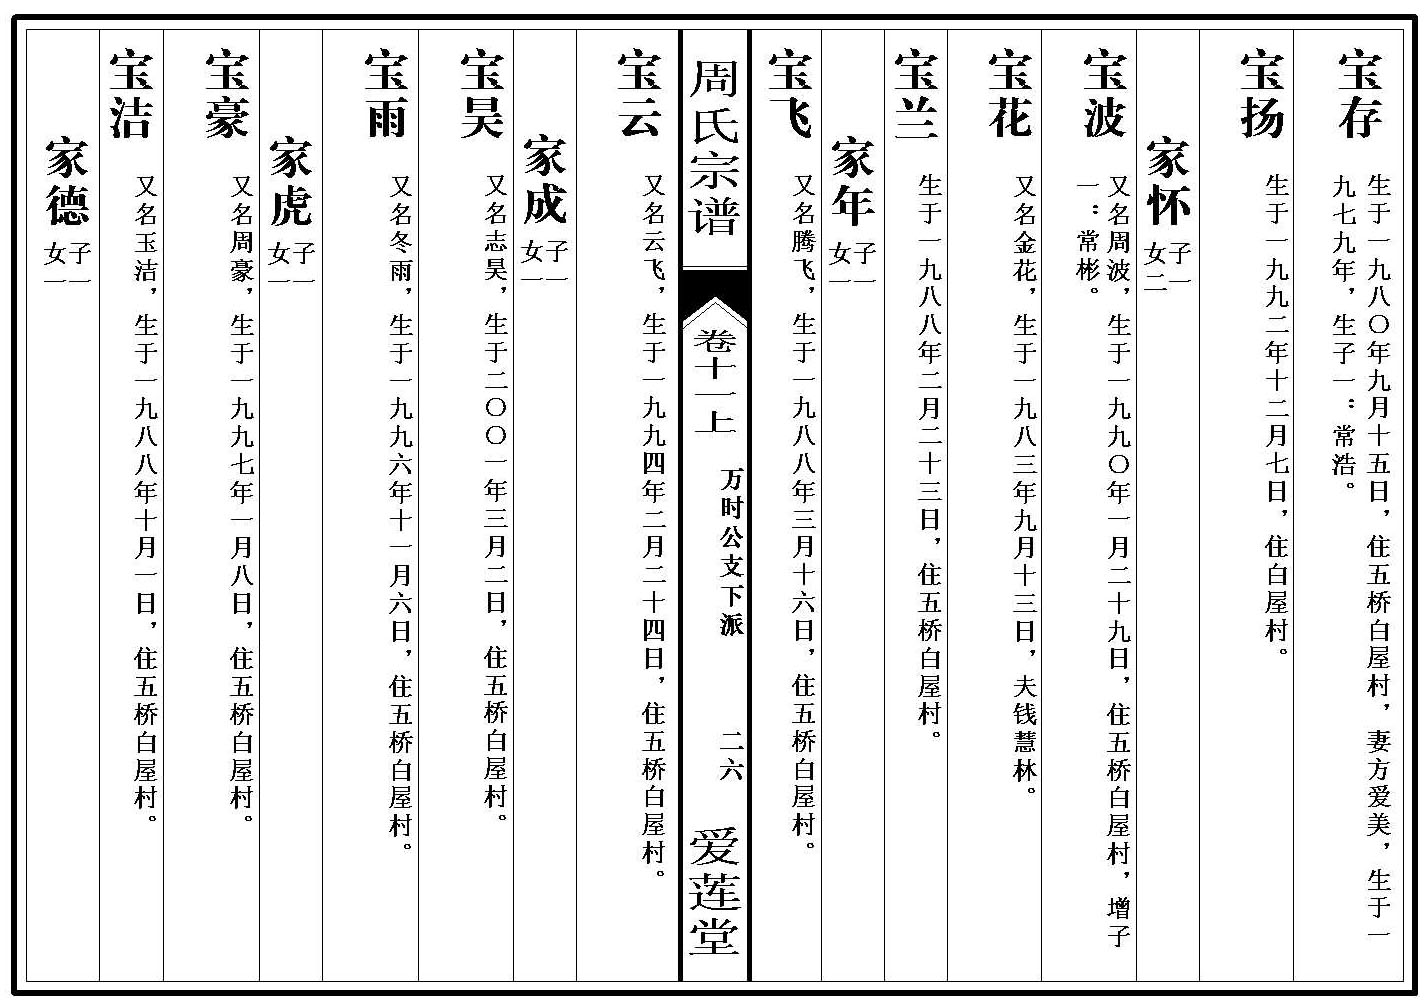 宝存
生于一九八〇年九月十五日，住五桥白屋村，妻方爱美，生于一
九七九年，生子一：常浩。
宝扬
生于一九九二年十二月七日，住白屋村。
家怀
子一
女二
宝波
又名周波，生于一九九〇年一月二十九日，住五桥白屋村，增子
一：常彬。
宝花
又名金花，生于一九八三年九月十三日，夫钱慧林。
宝兰
生于一九八八年二月二十三日，住五桥白屋村。
家年
子一
女一
宝飞
又名腾飞，生于一九八八年三月十六日，住五桥白屋村。
周氏宗谱
卷十一上
万时公支下派
二六
爱莲堂
宝云
又名云飞，生于一九九四年二月二十四日，住五桥白屋村。
家成
子一
女一
宝昊
又名志昊，生于二〇〇一年三月二日，住五桥白屋村。
宝雨
又名冬雨，生于一九九六年十一月六日，住五桥白屋村。
家虎
子一
女一
宝豪
又名周豪，生于一九九七年一月八日，住五桥白屋村。
宝洁
又名玉洁，生于一九八八年十月一日，住五桥白屋村。
家德
子一
女一